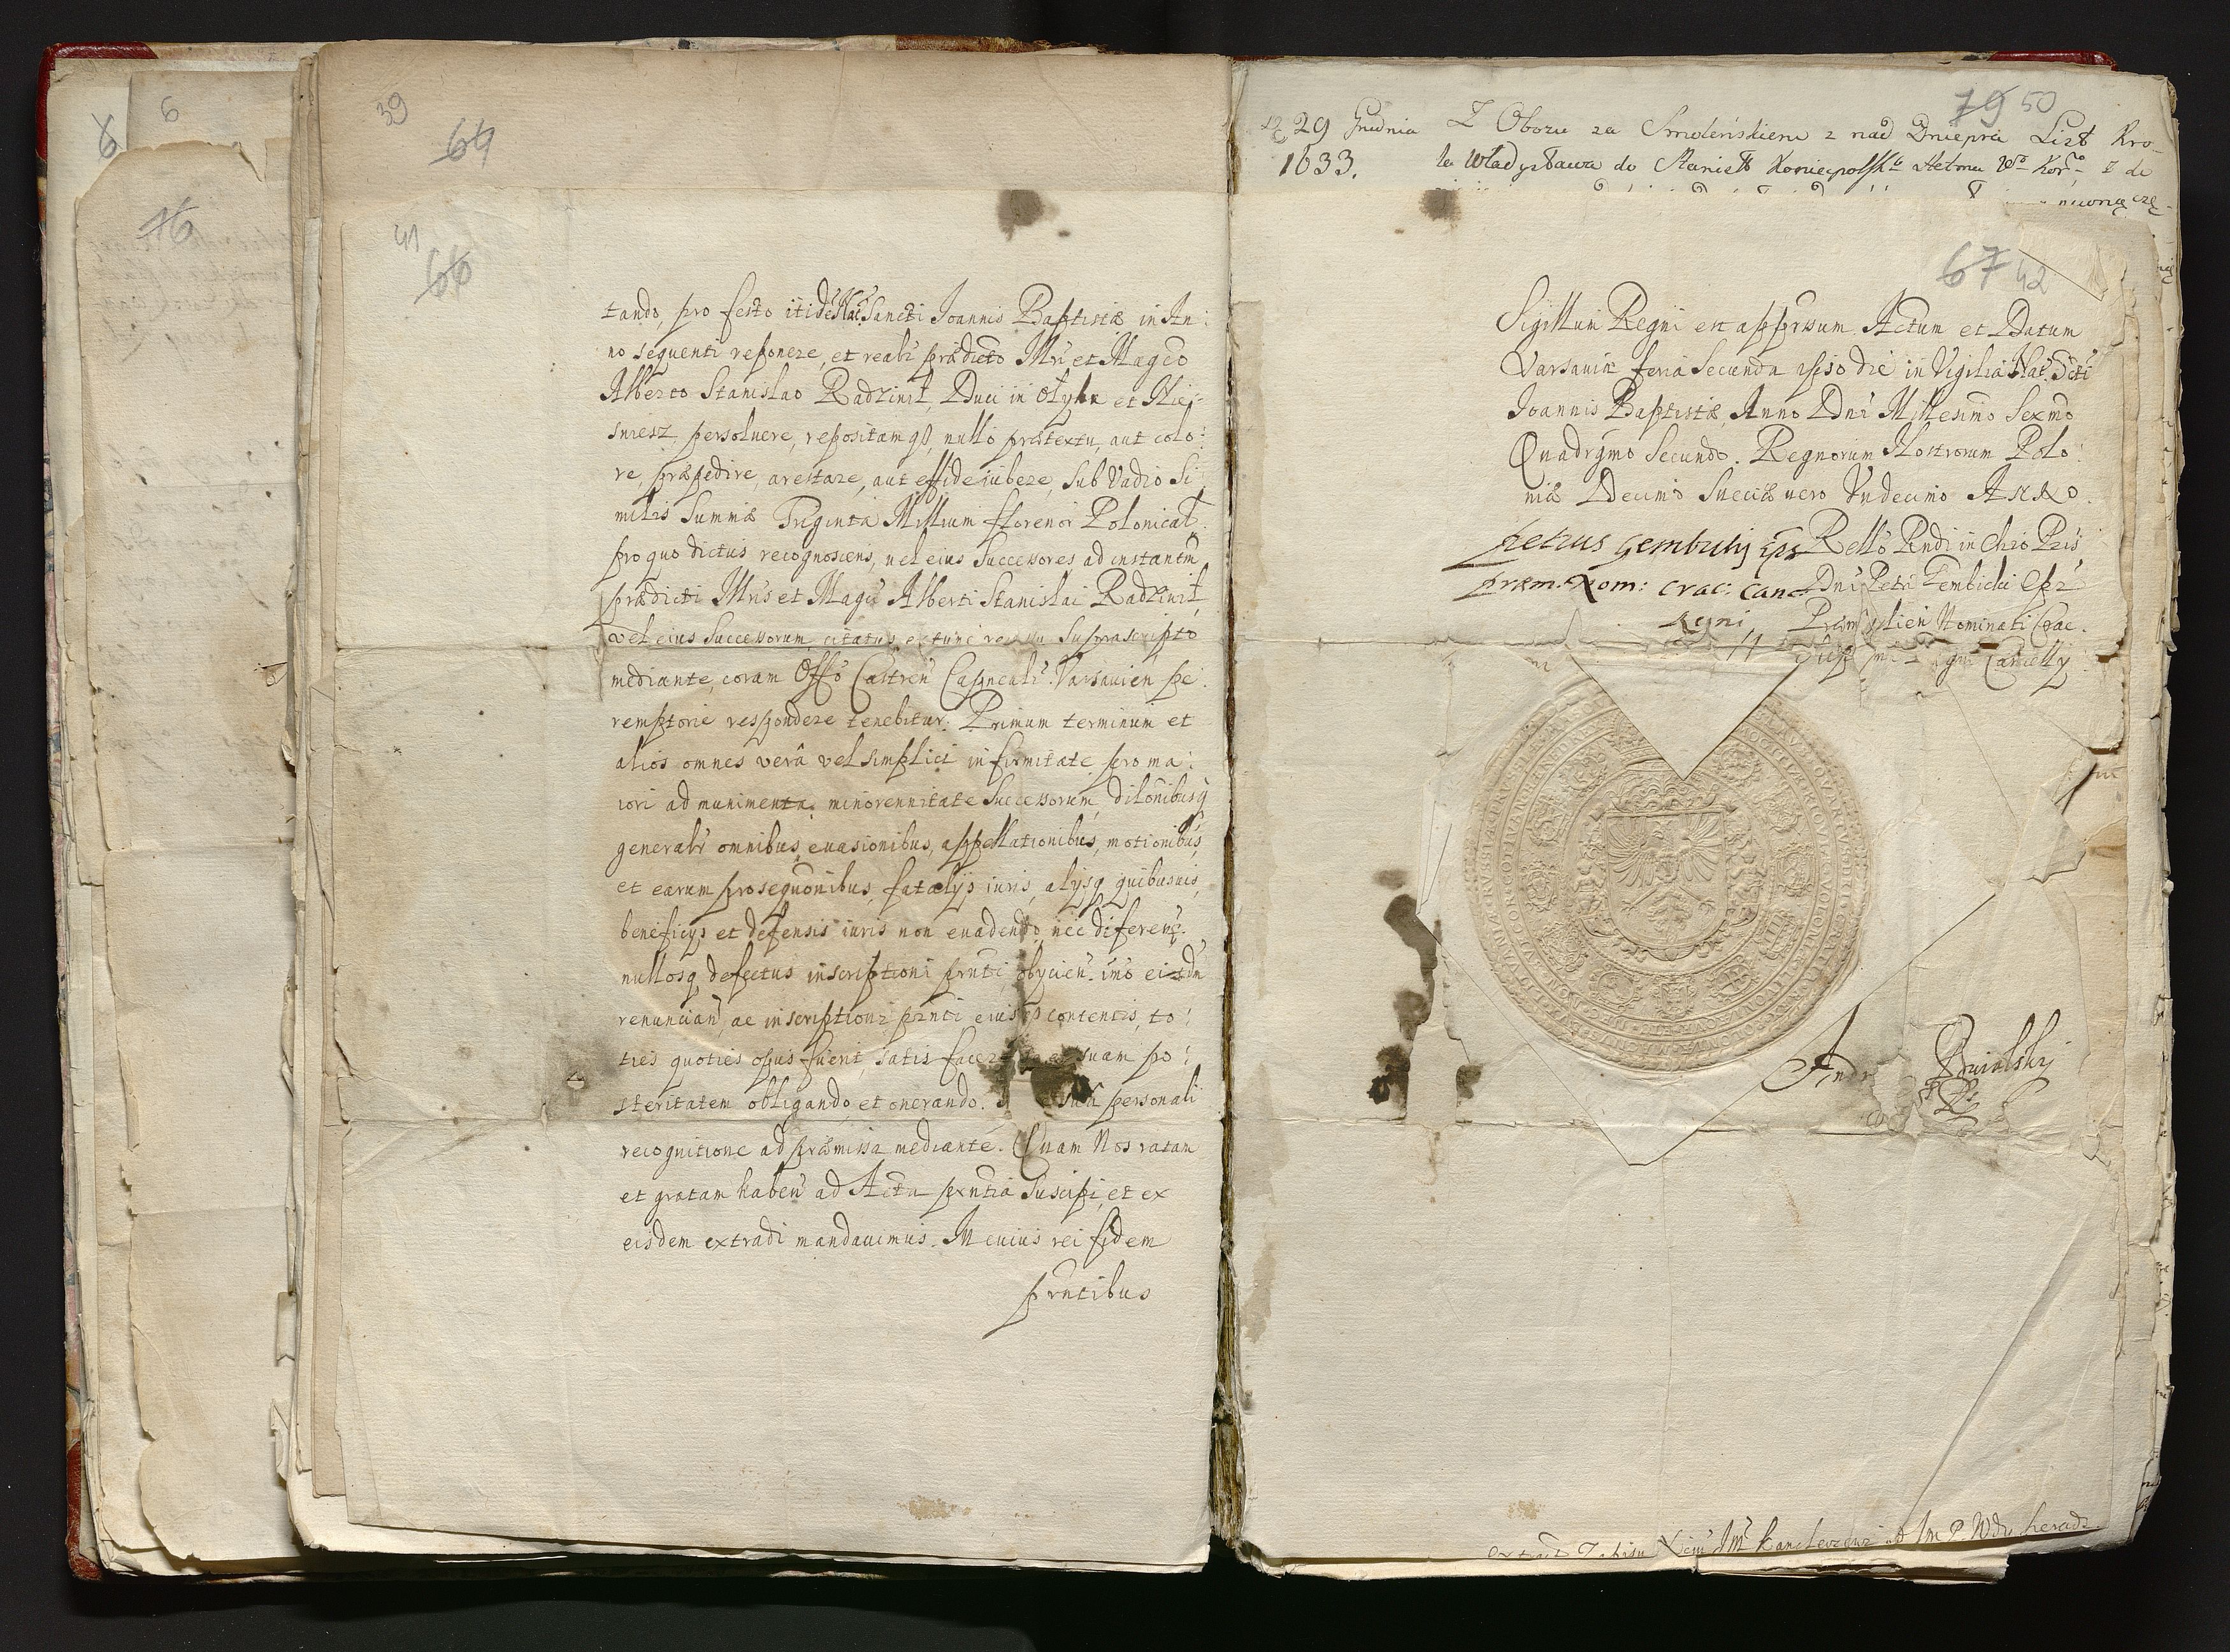 39
64
41
66
tando, pro festo itidẽ Nat: Sancti Joannis Baptistæ in An:
no sequenti reponere, et reali prædicto Illri et Magco
Alberto Stanislao Radziwił, Duci in Ołyka et Nie:
suiesz, persoluere, repositamq3, nullo prætextu, aut colo:
re, præpedire, arestare, aut effideiubere, Sub Vadio Si
milis Summæ Triginta Millium florenor Polonical:
pro quo dictus recognoscens, vel eius Successores ad instantm
prædicti Illris et Magci Alberti Stanislai Radziwił,
vel eius Successorum citatus, extunc Suprascripto
mediante, coram Offo Castren Capneali Varsauien pe:
remptorie respondere tenebitur. Primum terminum et
alios omnes verâ vel simplici infirmitate, pro ma:
iori ad munimenta, minorennitate Successorum, dilonibusq
generalr omnibus, euasionibus, appellationibus, motionibus,
et earum prosequonibus, fatalys iuris, alysq quibusuis,
beneficys et defensis iuris non euadendo, nec diferens.
nullosq defectus inscriptioni prnti obycien. imo eisdm
renuncian, ac inscriptioni prnti eiusq3 contentis, to:
ties quoties opus fuerit, satis facere suam po:
steritatem obligando et onerando. personali
recognitione ad præmissa mediante. Quam Nos ratam
et gratam haben ad Acta prntia Suscipi, et ex
eisdem extradi mandauimus. In cuius rei fidem
prntibus
79 50
29 Grudnia Z Obozu za Smoleńskiem z nad Dniepra List Kro-
1633. la Władysława do Stanisła Koniecpolskго Hetma Wgo Korgo, z de
67 42
Sigillum Regni est apprsum Actum et Datum
Varsauiæ feria Secunda ipso die in Vigilia Nat: Scti
Joannis Baptistæ, Anno Dni Millesimo Sexmo
Quadrgmo Secundo. Regnorum Nostrorum Polo:
niæ Decimo Sueciæ vero Vndecimo Anno.
Petrus Gembicky Eps
Præm: Nom: Crac: Canc:
Regni
Rello Rndi in Chro Pris
Dni Petri Gembicki Epi
Præmislien Nominati Crac.
Cancelly
Andr
extract Zapisu Xcia Jm Kanclerzewi od Jm P. Wdy Sieradz